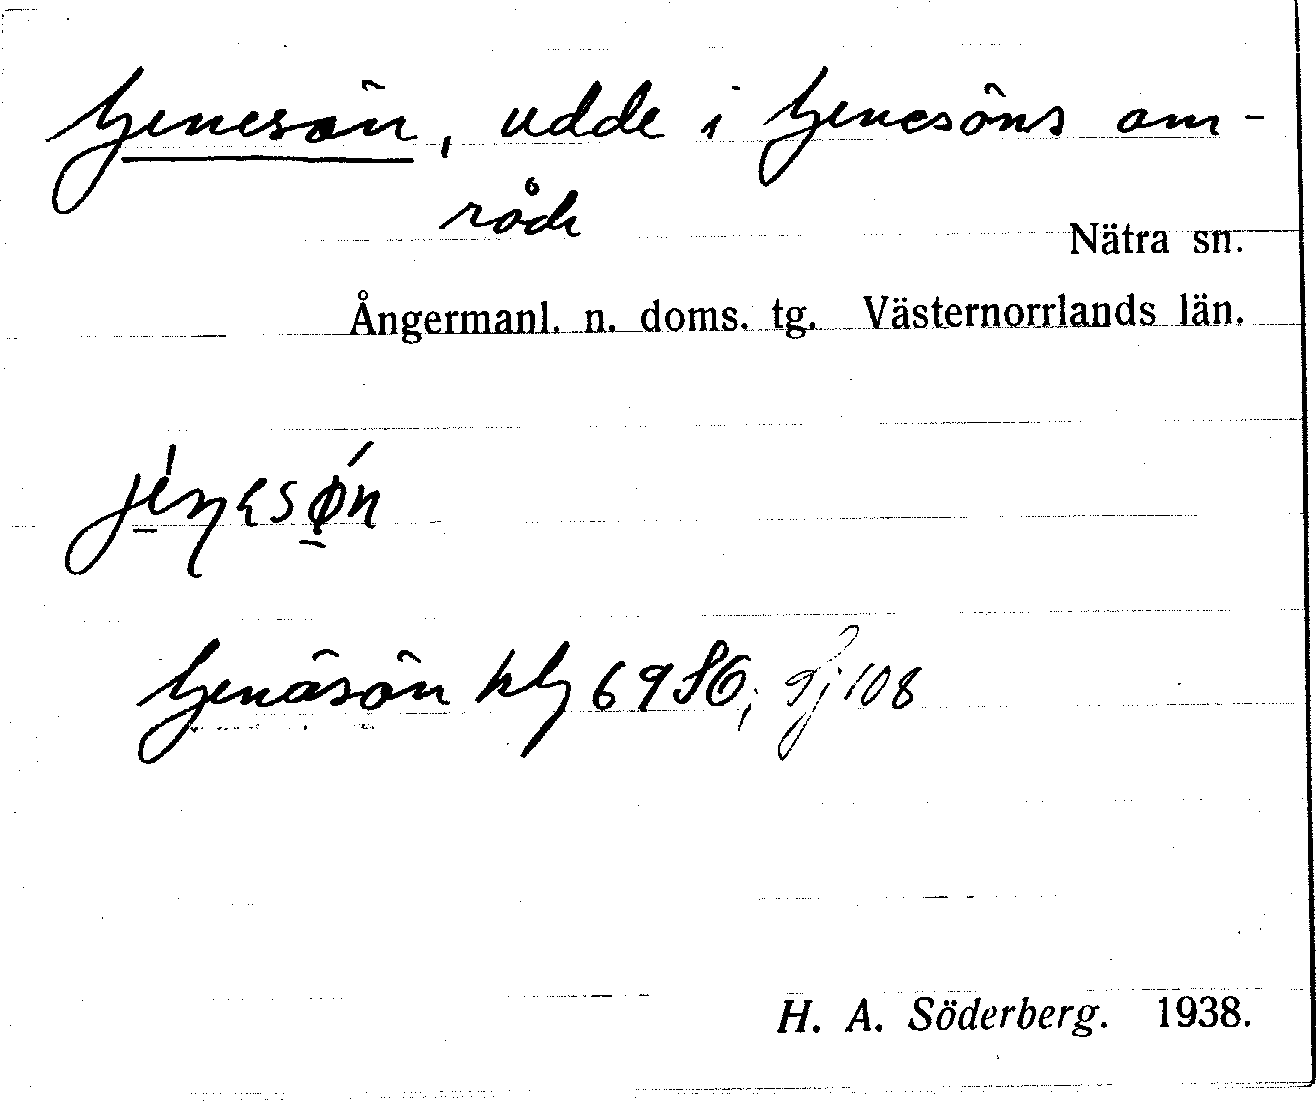 Genesön, udde i Genesöns om-
råde
Nätra sn.
Ångermanl. n. doms. tg. Västernorrlands län.
Genäsön kbg 6980; 9j 108
H. A. Söderberg. 1938.